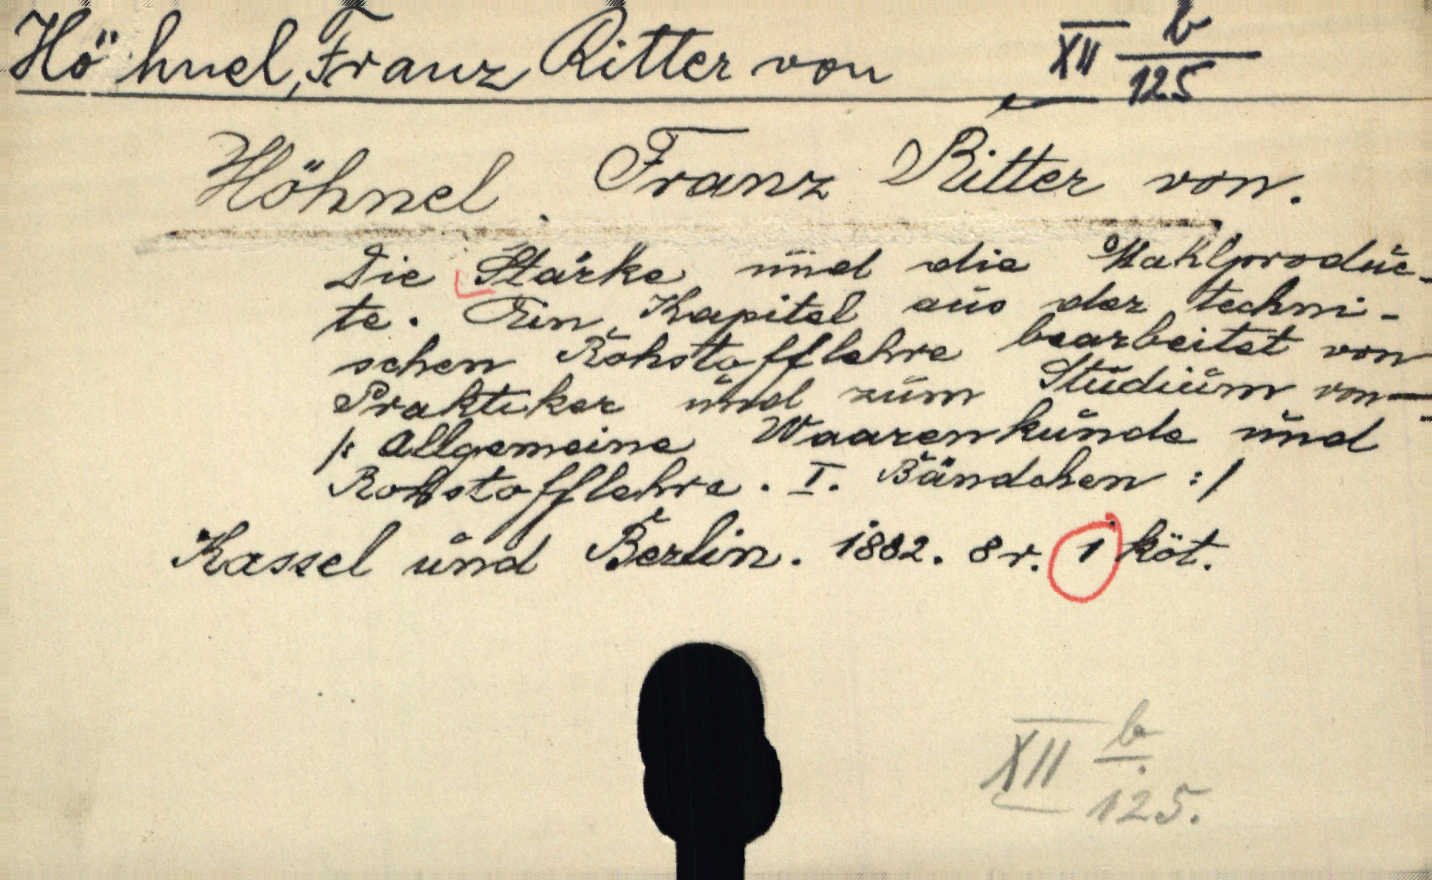 Höhnel, Franz Ritter von XII b/125
Höhnel. Franz Ritter von.
Die Stärke und die Mahlproduc-
te. Ein Kapitel aus der techni-
schen Rohstofflehre bearbeitet von
Praktiker und zum Studium von —
/: Allgemeine Waarenkunde und
Rohstofflehre. I. Bändchen :/
Kassel und Berlin. 1882. 8r. 1 köt.
XII b/125.